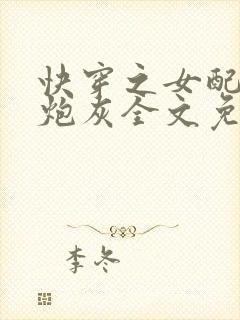 快穿之女配
炮灰全文免
李冬